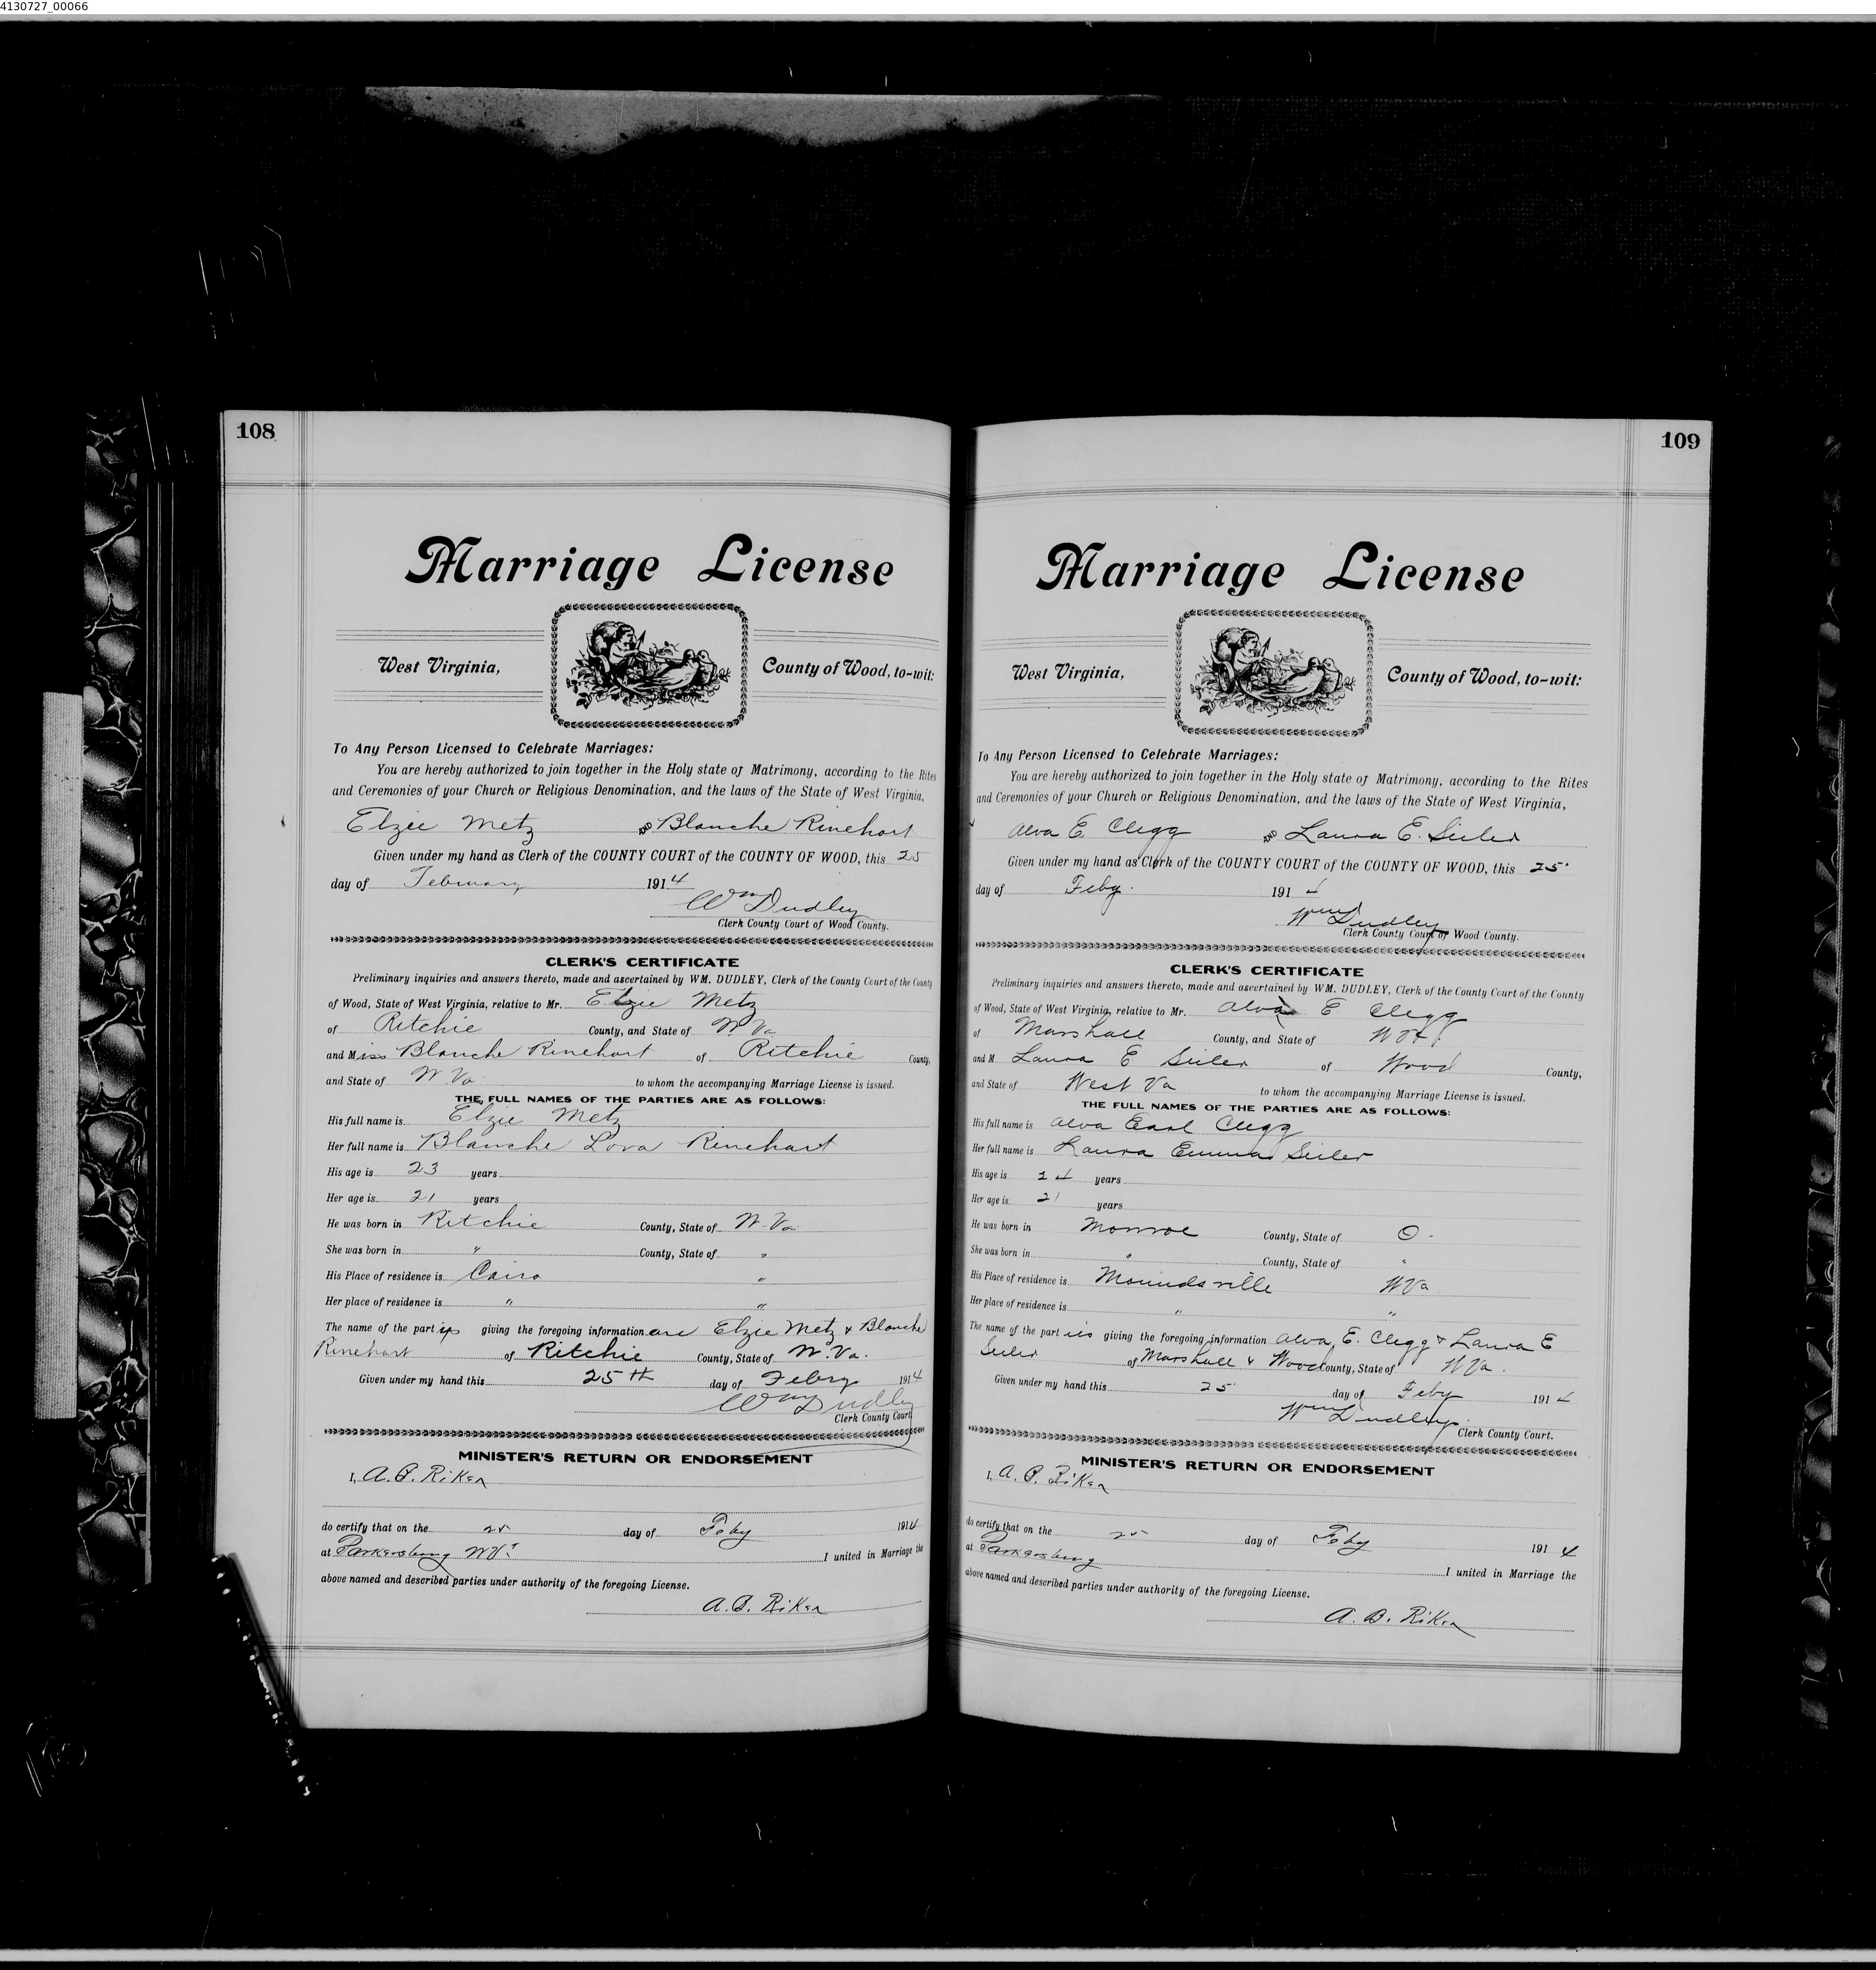 4130727_00066
108
Marriage License
West Virginia, County of Wood, to-wit:
To Any Person Licensed to Celebrate Marriages:
You are hereby authorized to join together in the Holy state of Matrimony, according to the Rites
and Ceremonies of your Church or Religious Denomination, and the laws of the State of West Virginia,
Elzie Metz AND Blanche Rinehart
Given under my hand as Clerk of the COUNTY COURT of the COUNTY OF WOOD, this 25
day of February 1914
Wm Dudley
Clerk County Court of Wood County.
CLERK'S CERTIFICATE
Preliminary inquiries and answers thereto, made and ascertained by WM. DUDLEY, Clerk of the County Court of the County
of Wood, State of West Virginia, relative to Mr. Elzie Metz
of Ritchie County, and State of W. Va
and Miss Blanche Rinehart of Ritchie County,
and State of W. Va to whom the accompanying Marriage License is issued.
THE FULL NAMES OF THE PARTIES ARE AS FOLLOWS:
His full name is Elzie Metz
Her full name is Blanche Lova Rinehart
His age is 23 years
Her age is 21 years
He was born in Ritchie County, State of W. Va
She was born in " County, State of "
His Place of residence is Cairo "
Her place of residence is " "
The name of the part ies giving the foregoing information are Elzie Metz & Blanche
Rinehart of Ritchie County, State of W. Va.
Given under my hand this 25th day of Febry 1914
Wm Dudley
Clerk County Court
MINISTER'S RETURN OR ENDORSEMENT
I, A. B. Riker
do certify that on the 25 day of Feby 1914
at Parkersburg WVa I united in Marriage the
above named and described parties under authority of the foregoing License.
A. B. Riker
109
Marriage License
West Virginia, County of Wood, to-wit:
To Any Person Licensed to Celebrate Marriages:
You are hereby authorized to join together in the Holy state of Matrimony, according to the Rites
and Ceremonies of your Church or Religious Denomination, and the laws of the State of West Virginia,
Alva E. Clegg AND Laura E. Seiler
Given under my hand as Clerk of the COUNTY COURT of the COUNTY OF WOOD, this 25
day of Feby. 1914
Wm Dudley
Clerk County Court of Wood County.
CLERK'S CERTIFICATE
Preliminary inquiries and answers thereto, made and ascertained by WM. DUDLEY, Clerk of the County Court of the County
of Wood, State of West Virginia, relative to Mr. Alva E Clegg
of Marshall County, and State of W Va.
and M Laura E Seiler of Wood County,
and State of West Va to whom the accompanying Marriage License is issued.
THE FULL NAMES OF THE PARTIES ARE AS FOLLOWS:
His full name is Alva Earl Clegg
Her full name is Laura Emma Seiler
His age is 24 years
Her age is 21 years
He was born in Monroe County, State of O.
She was born in " County, State of "
His Place of residence is Moundsville W Va
Her place of residence is " "
The name of the part ies giving the foregoing information Alva E. Clegg & Laura E
Seiler of Marshall & Wood County, State of W Va.
Given under my hand this 25 day of Feby 1914
Wm Dudley
Clerk County Court.
MINISTER'S RETURN OR ENDORSEMENT
I, A. B. Riker
do certify that on the 25 day of Feby 1914
at Parkersburg I united in Marriage the
above named and described parties under authority of the foregoing License.
A. B. Riker